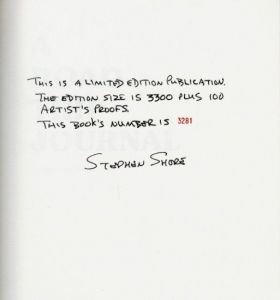 THIS IS A LIMITED EDITION PUBLICATION.
THE EDITION SIZE IS 3300 PLUS 100
ARTIST'S PROOFS.
THIS BOOK'S NUMBER IS 3281
STEPHEN SHORE
A
ROAD
TRIP
JOURNAL